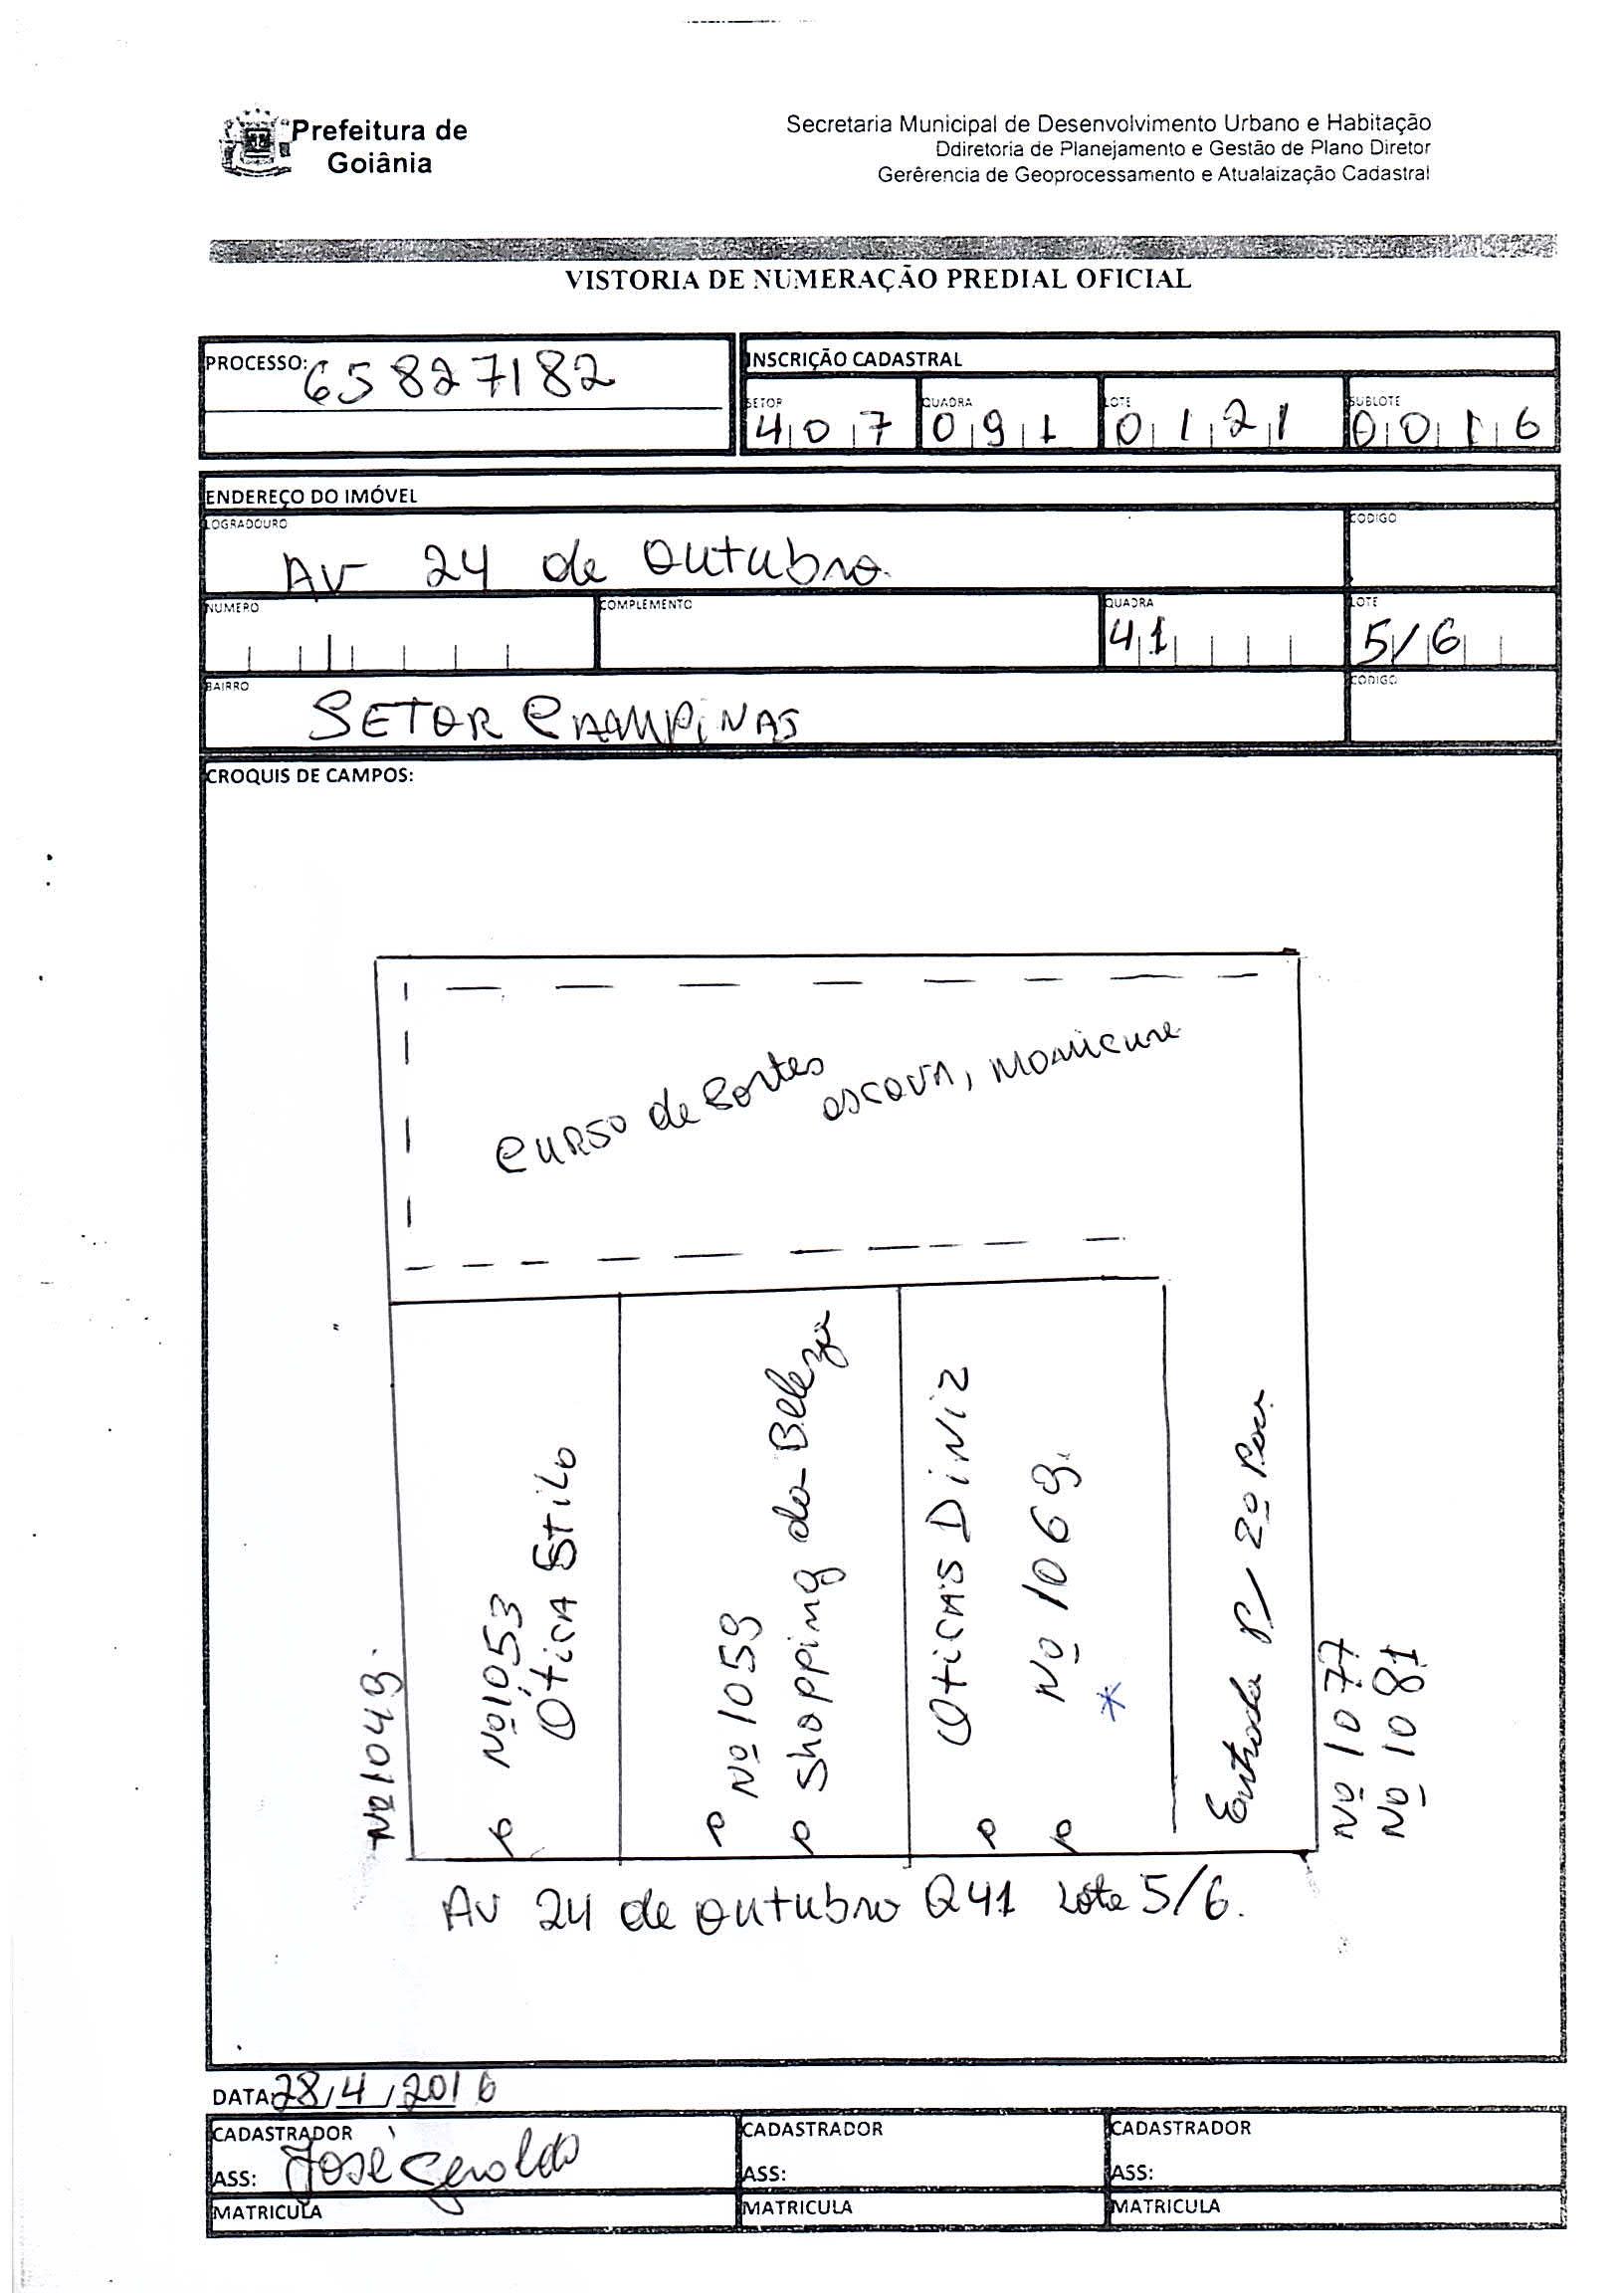 Prefeitura de
Goiânia
Secretaria Municipal de Desenvolvimento Urbano e Habitação
Ddiretoria de Planejamento e Gestão de Plano Diretor
Gerêrencia de Geoprocessamento e Atualaização Cadastral
VISTORIA DE NUMERAÇÃO PREDIAL OFICIAL
PROCESSO: 65827182
INSCRIÇÃO CADASTRAL
SETOR QUADRA LOTE SUBLOTE
407 091 0121 0016
ENDEREÇO DO IMÓVEL
LOGRADOURO CODIGO
AV 24 de Outubro
NUMERO COMPLEMENTO QUADRA LOTE
41 5/6
BAIRRO CODIGO
SETOR CAMPINAS
CROQUIS DE CAMPOS:
CURSO de Cortes
escova, Manicure
Nº 1049.
Nº 1053
Otica Stilo
Nº 1059
Shopping da Beleza
Oticas Diniz
Nº 1069.
*
Entrada P/ 2º Pav.
Nº 1077
Nº 1081
AV 24 de outubro Q41 Lote 5/6.
DATA: 28/4/2016
CADASTRADOR CADASTRADOR CADASTRADOR
ASS: José Geraldo ASS: ASS:
MATRICULA MATRICULA MATRICULA